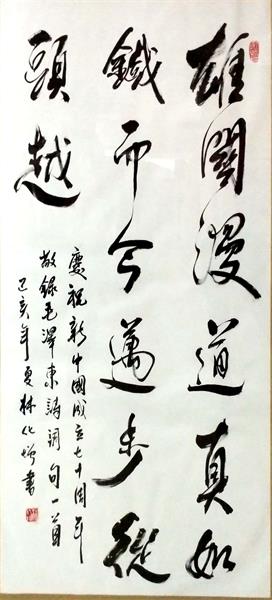 雄關漫道真如
鐵而今邁步從
頭越
慶祝新中國成立七十周年
敬錄毛澤東詩詞句一首
己亥年夏林化增書